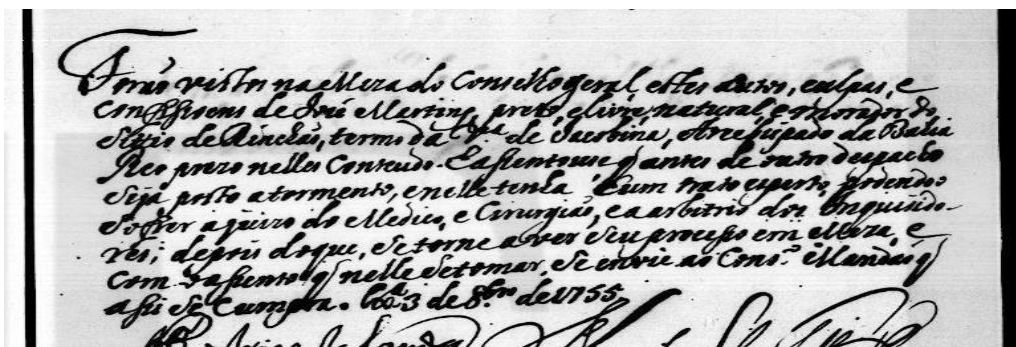 Forão vistos na Meza do Conselho geral estes autos, culpas, e
confissoens de José Martins, preto, e livre, natural, e morador do
Sitio de Riachão, termo da V.ª de Jacobina, Arcebispado da Bahia
Reo prezo nelles contheudo. E assentouse q̃ antes de outro despacho
seja posto a tormento, e nelle tenha hum trato esperto, podendoo
sofrer a juizo do Medico, e Cirurgião, e a arbitrio dos Inquizido-
res; depois do que, se torne a ver seu processo em Meza, e
com o assento q̃ nelle se tomar, se envie ao Cons.º E Mandão q̃
assi se Cumpra. Lxª 3 de 8.bro de 1755